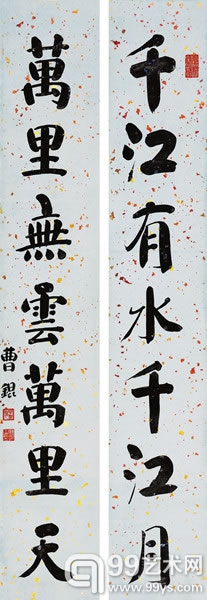 千江有水千江月
萬里無雲萬里天
曹錕
99艺术网
www.99ys.com